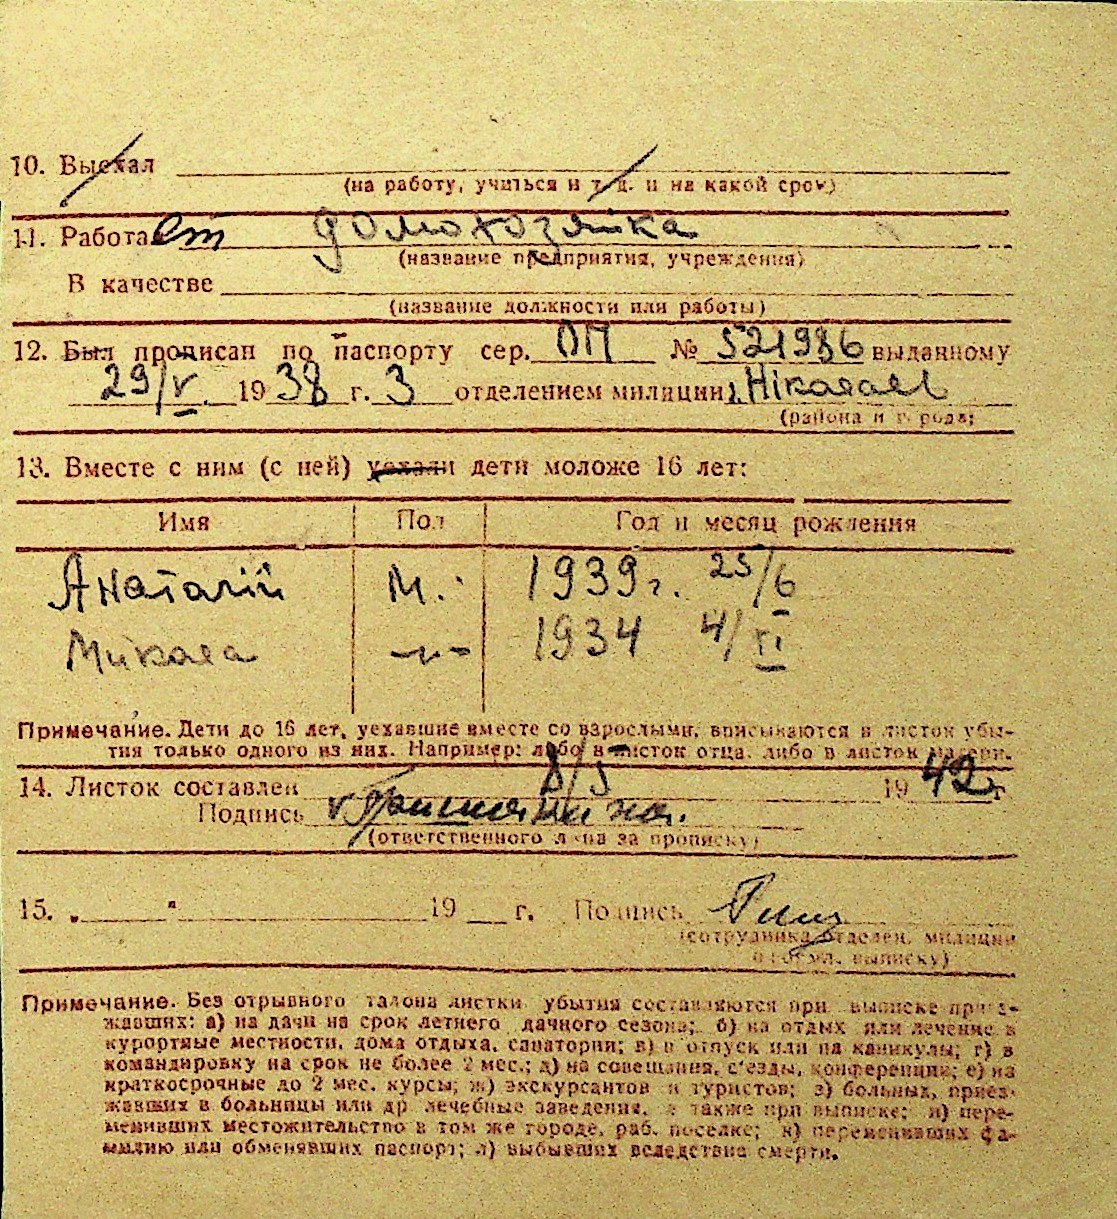 10. Выехал
(на работу, учиться и т. д. и на какой срок)
11. Работает домохозяйка
(название предприятия, учреждения)
В качестве
(название должности или работы)
12. Был прописан по паспорту сер. ОП № 521986 выданному
29/V 1938 г. 3 отделением милиции
(района и города)
13. Вместе с ним (с ней) уехали дети моложе 16 лет:
Имя Пол Год и месяц рождения
Анатолій М. 1939 г. 25/6
Микола -„- 1934 4/VI
Примечание. Дети до 16 лет, уехавшие вместе со взрослыми, вписываются в листок убы-
тия только одного из них. Например: либо в листок отца, либо в листок матери.
14. Листок составлен 8/5 1942 г
Подпись
(ответственного лица за прописку)
15. „ " 19 г. Подпись
(сотрудника отделен. милиции
выписку)
Примечание. Без отрывного талона листки убытия составляются при выписке приез-
жавших: а) на дачи на срок летнего дачного сезона; б) на отдых или лечение в
курортные местности, дома отдыха, санатории; в) в отпуск или на каникулы; г) в
командировку на срок не более 2 мес.; д) на совещания, с'езды, конференции; е) на
краткосрочные до 2 мес. курсы; ж) экскурсантов и туристов; з) больных, приез-
жавших в больницы или др лечебные заведения, а также при выписке; и) пере-
менивших местожительство в том же городе, раб. поселке; к) переменивших фа-
милию или обменявших паспорт; л) выбывших вследствие смерти.